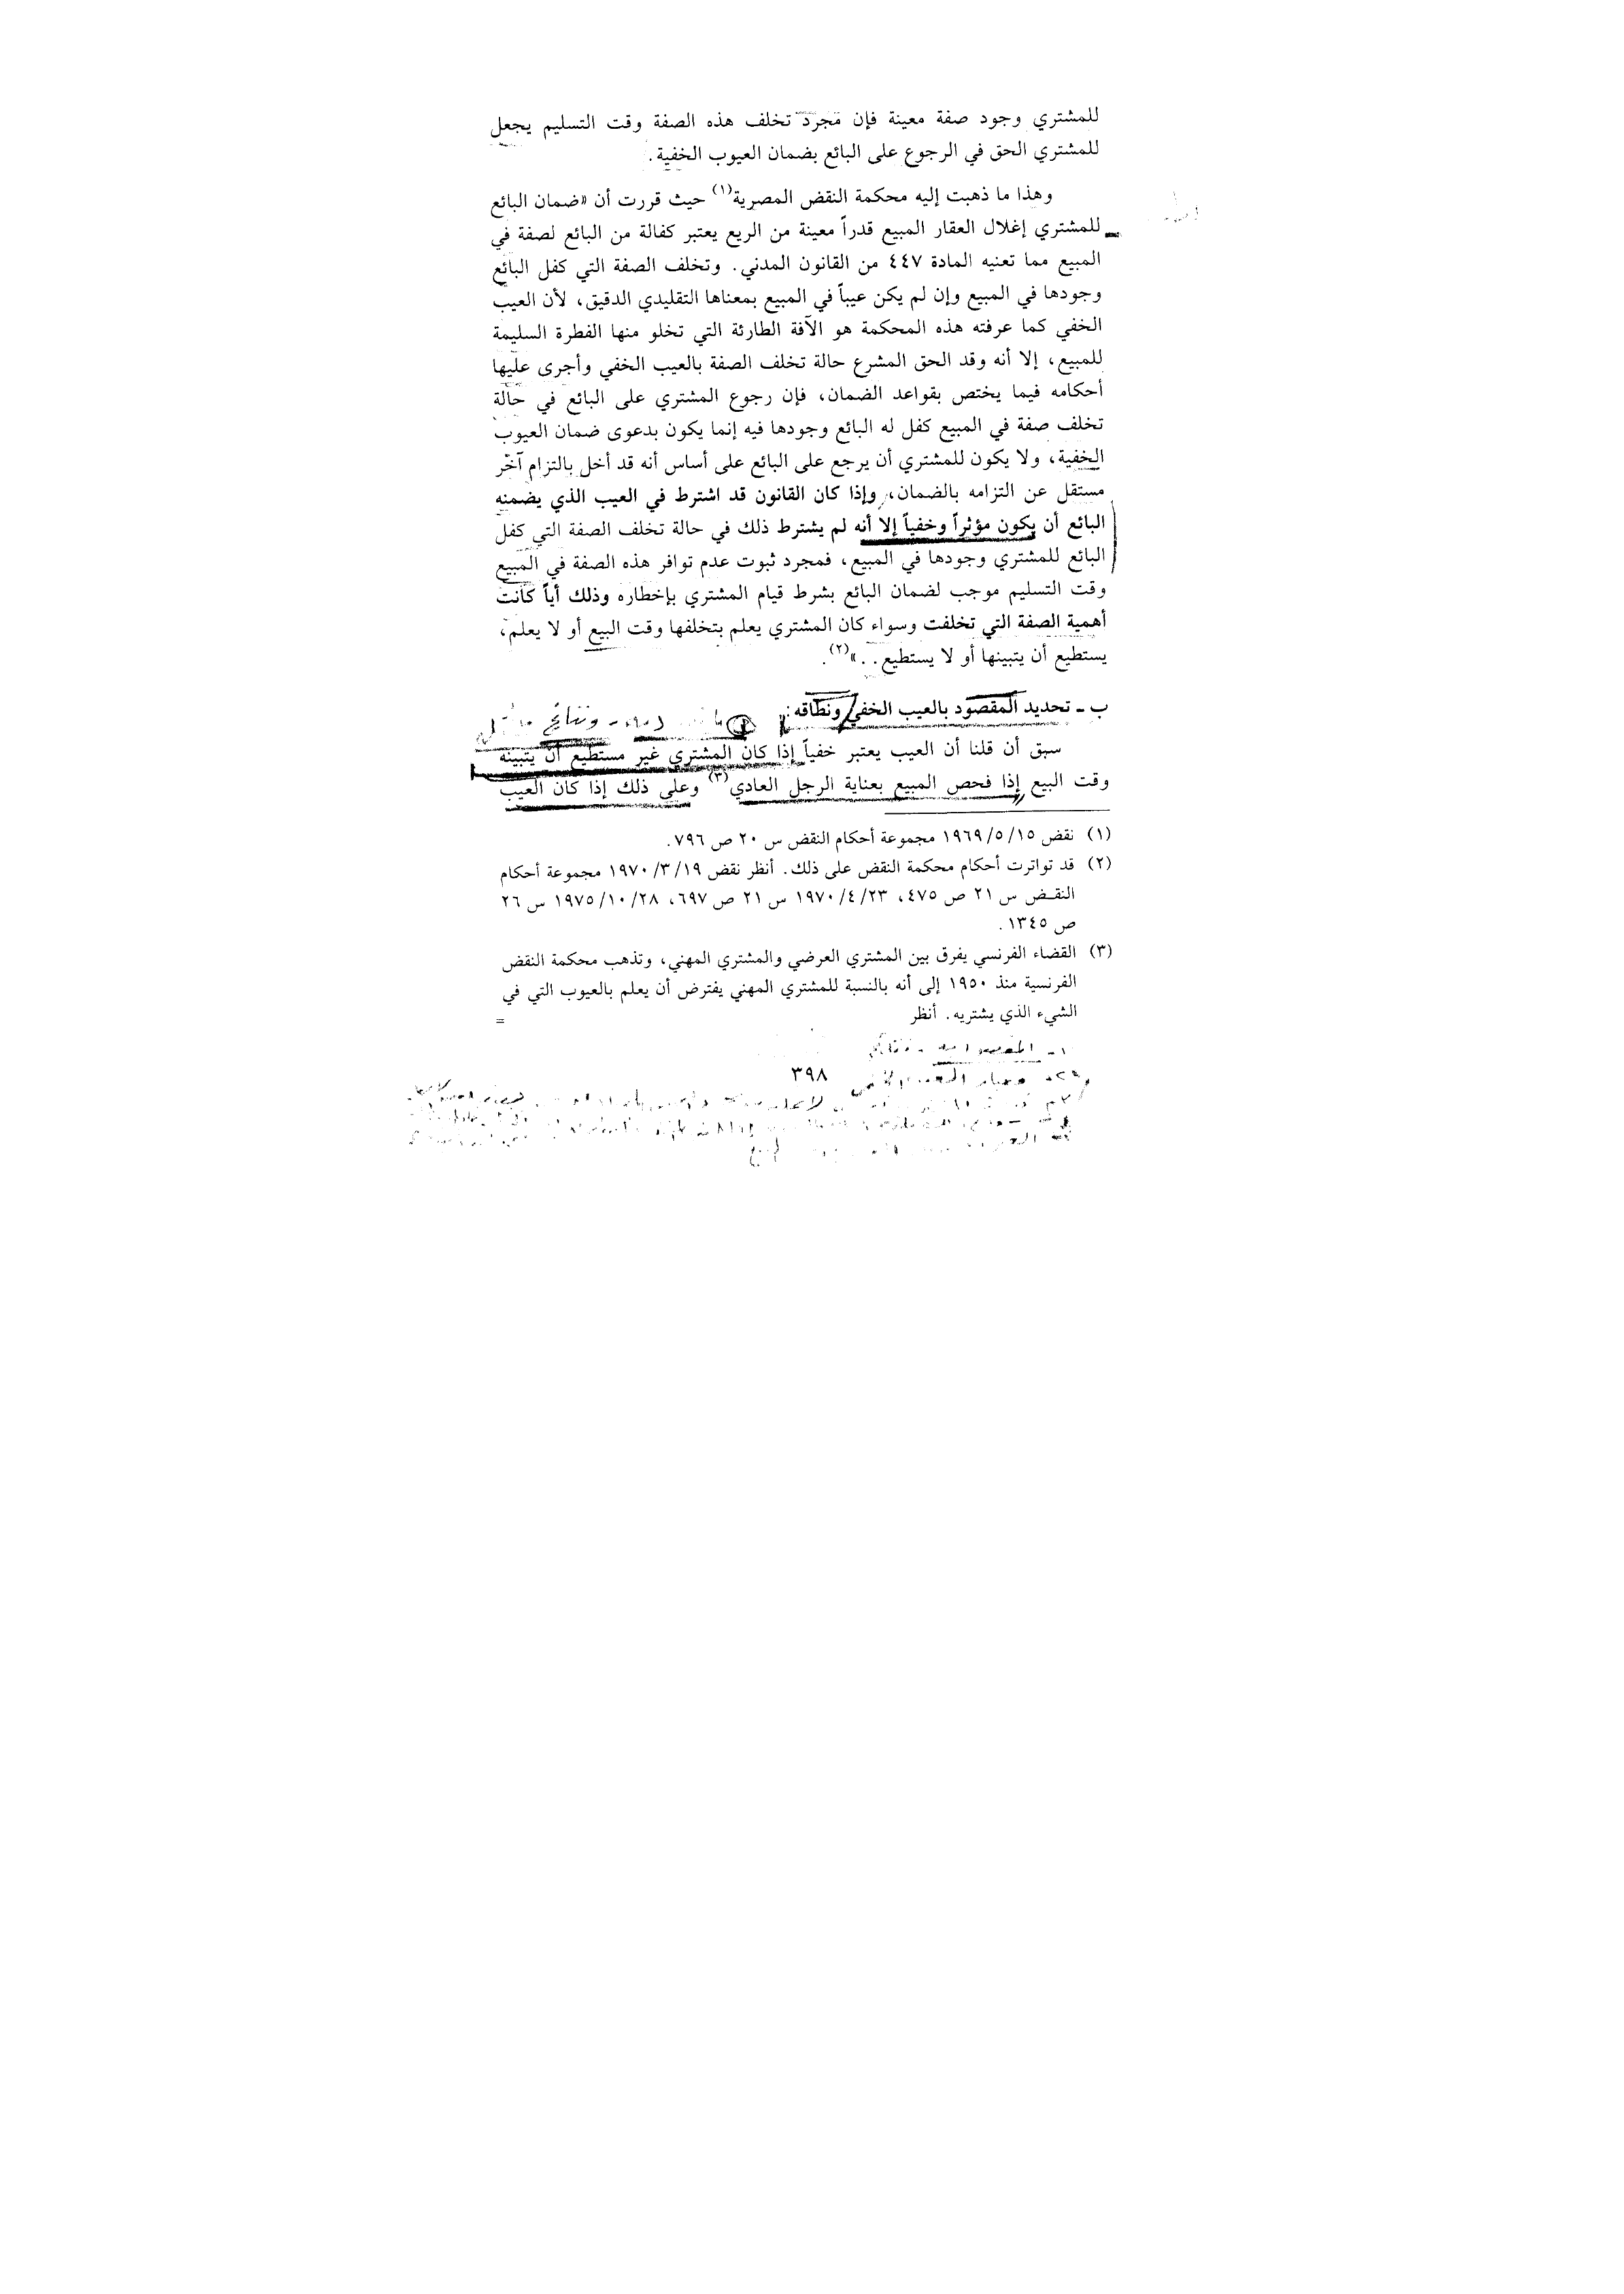 للمشتري وجود صفة معينة فإن مجرد تخلف هذه الصفة وقت التسليم يجعل
للمشتري الحق في الرجوع على البائع بضمان العيوب الخفية.
وهذا ما ذهبت إليه محكمة النقض المصرية(١) حيث قررت أن «ضمان البائع
للمشتري إغلال العقار المبيع قدراً معينة من الريع يعتبر كفالة من البائع لصفة في
المبيع مما تعنيه المادة ٤٤٧ من القانون المدني. وتخلف الصفة التي كفل البائع
وجودها في المبيع وإن لم يكن عيباً في المبيع بمعناها التقليدي الدقيق، لأن العيب
الخفي كما عرفته هذه المحكمة هو الآفة الطارئة التي تخلو منها الفطرة السليمة
للمبيع، إلا أنه وقد الحق المشرع حالة تخلف الصفة بالعيب الخفي وأجرى عليها
أحكامه فيما يختص بقواعد الضمان، فإن رجوع المشتري على البائع في حالة
تخلف صفة في المبيع كفل له البائع وجودها فيه إنما يكون بدعوى ضمان العيوب
الخفية، ولا يكون للمشتري أن يرجع على البائع على أساس أنه قد أخل بالتزام آخر
مستقل عن التزامه بالضمان، وإذا كان القانون قد اشترط في العيب الذي يضمنه
البائع أن يكون مؤثراً وخفياً إلا أنه لم يشترط ذلك في حالة تخلف الصفة التي كفل
البائع للمشتري وجودها في المبيع، فمجرد ثبوت عدم توافر هذه الصفة في المبيع
وقت التسليم موجب لضمان البائع بشرط قيام المشتري بإخطاره وذلك أياً كانت
أهمية الصفة التي تخلفت وسواء كان المشتري يعلم بتخلفها وقت البيع أو لا يعلم،
يستطيع أن يتبينها أو لا يستطيع. .»(٢).
ب ـ تحديد المقصود بالعيب الخفي ونطاقه: ونتائج
سبق أن قلنا أن العيب يعتبر خفياً إذا كان المشتري غير مستطيع أن يتبينه
وقت البيع إذا فحص المبيع بعناية الرجل العادي(٣) وعلى ذلك إذا كان العيب
(١) نقض ١٩٦٩/٥/١٥ مجموعة أحكام النقض س ٢٠ ص ٧٩٦.
(٢) قد تواترت أحكام محكمة النقض على ذلك. أنظر نقض ١٩٧٠/٣/١٩ مجموعة أحكام
النقـض س ٢١ ص ٤٧٥، ١٩٧٠/٤/٢٣ س ٢١ ص ٦٩٧، ١٩٧٥/١٠/٢٨ س ٢٦
ص ١٣٤٥.
(٣) القضاء الفرنسي يفرق بين المشتري العرضي والمشتري المهني، وتذهب محكمة النقض
الفرنسية منذ ١٩٥٠ إلى أنه بالنسبة للمشتري المهني يفترض أن يعلم بالعيوب التي في
الشيء الذي يشتريه. أنظر =
٣٩٨